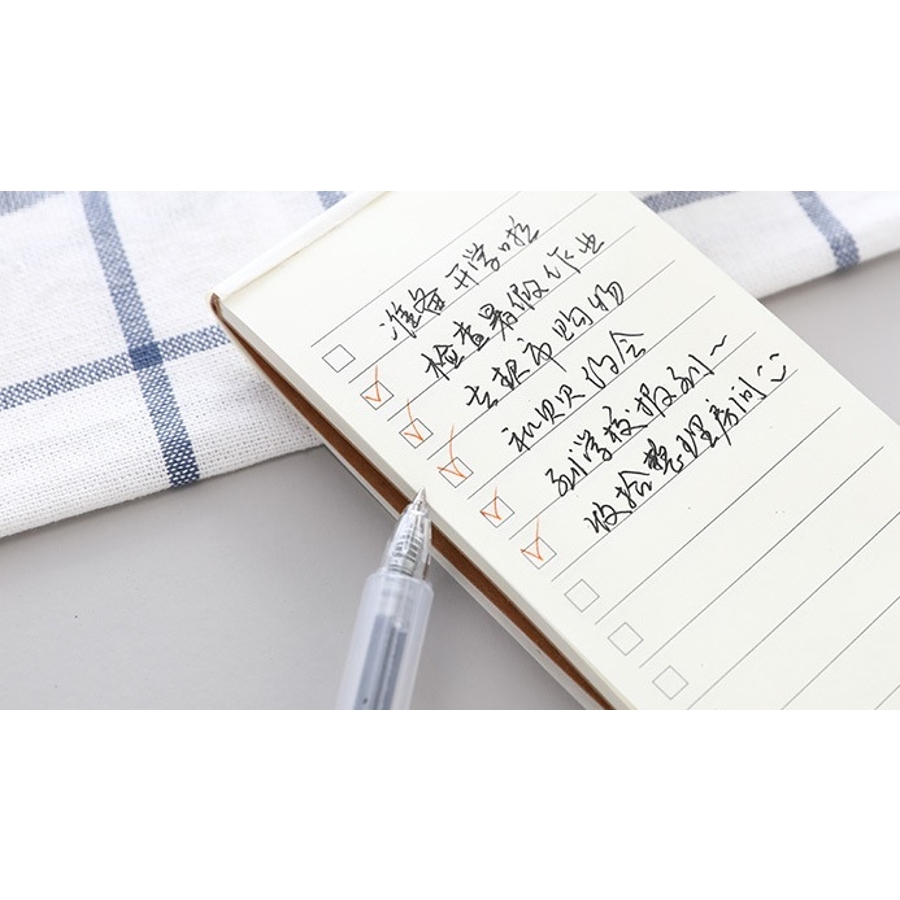 准备开学啦
检查暑假作业
去超市购物
和贝贝约会
到学校报到~
收拾整理房间